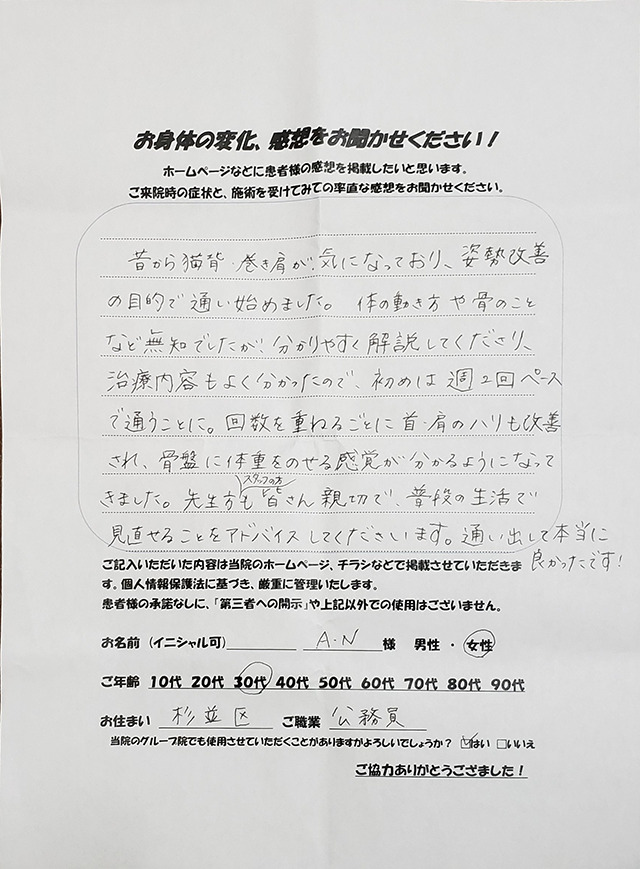 お身体の変化、感想をお聞かせください！
ホームページなどに患者様の感想を掲載したいと思います。
ご来院時の症状と、施術を受けてみての率直な感想をお聞かせください。
昔から猫背・巻き肩が気になっており、姿勢改善
の目的で通い始めました。体の動き方や骨のこと
など無知でしたが、分かりやすく解説してくださり、
治療内容もよく分かったので、初めは週2回ペース
で通うことに。回数を重ねるごとに首・肩のハリも改善
され、骨盤に体重をのせる感覚が分かるようになって
スタッフの方
きました。先生方も皆さん親切で、普段の生活で
見直せることをアドバイスしてくださいます。通い出して本当に
良かったです！
ご記入いただいた内容は当院のホームページ、チラシなどで掲載させていただきま
す。個人情報保護法に基づき、厳重に管理いたします。
患者様の承諾なしに、「第三者への開示」や上記以外での使用はございません。
お名前（イニシャル可） A.N 様 男性・女性
ご年齢 10代 20代 30代 40代 50代 60代 70代 80代 90代
お住まい 杉並区 ご職業 公務員
当院のグループ院でも使用させていただくことがありますがよろしいでしょうか？ ☑はい □いいえ
ご協力ありがとうござました！